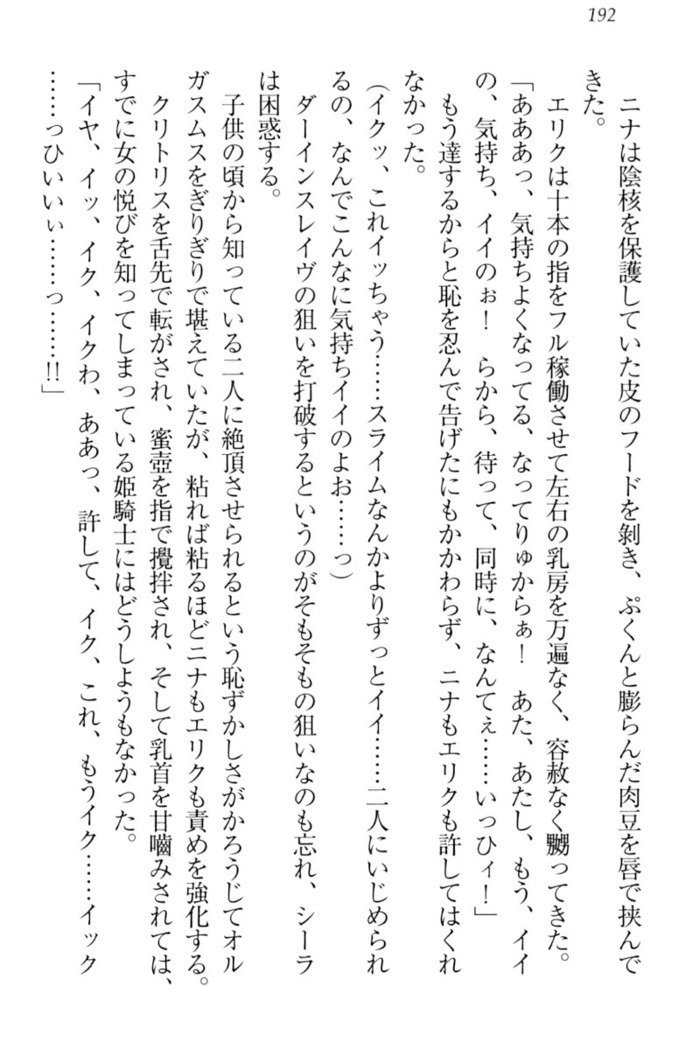 192
ニナは陰核を保護していた皮のフードを剝き、ぷくんと膨らんだ肉豆を唇で挟んで
きた。
エリクは十本の指をフル稼働させて左右の乳房を万遍なく、容赦なく嬲ってきた。
「あああっ、気持ちよくなってる、なってりゅからぁ！　あた、あたし、もう、イイ
の、気持ち、イイのぉ！　らから、待って、同時に、なんてぇ……いっひィ！」
もう達するからと恥を忍んで告げたにもかかわらず、ニナもエリクも許してはくれ
なかった。
（イクッ、これイッちゃう……スライムなんかよりずっとイイ……二人にいじめられ
るの、なんでこんなに気持ちイイのよお……っ）
ダーインスレイヴの狙いを打破するというのがそもそもの狙いなのも忘れ、シーラ
は困惑する。
子供の頃から知っている二人に絶頂させられるという恥ずかしさがかろうじてオル
ガスムスをぎりぎりで堪えていたが、粘れば粘るほどニナもエリクも責めを強化する。
クリトリスを舌先で転がされ、蜜壺を指で攪拌され、そして乳首を甘嚙みされては、
すでに女の悦びを知ってしまっている姫騎士にはどうしようもなかった。
「イヤ、イッ、イク、イクわ、ああっ、許して、イク、これ、もうイク……イック
……っひいいぃ……っ……!!」